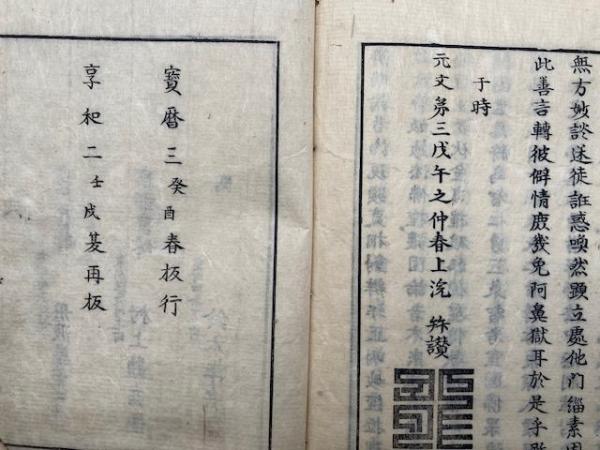 無方妙談送徒誑惑喚然顕立處他门緇素因
此善言轉彼僻情庶幾免阿鼻獄耳於是乎
于時
元文苐三戊午之仲春上浣 讃
寳暦三癸酉春板行
享和二壬戌夏再板